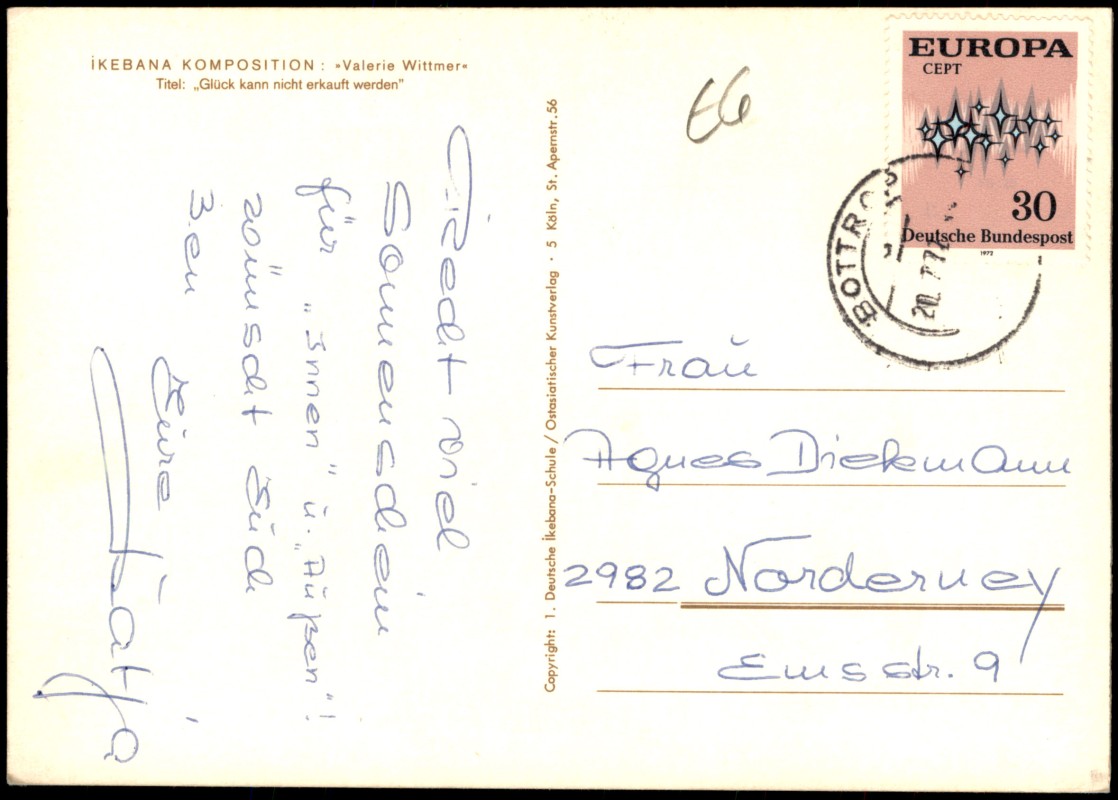 İKEBANA KOMPOSITION : »Valerie Wittmer«
Titel: „Glück kann nicht erkauft werden"
Recht viel
Sonnenschein
für „Innen" u. „Außen"!
wünscht Euch
Eure
Copyright: 1. Deutsche İkebana-Schule / Ostasiatischer Kunstverlag · 5 Köln, St. Apernstr. 56
E6
EUROPA
CEPT
30
Deutsche Bundespost
1972
BOTTRO
20.7.72
Frau
Agnes Diekmann
2982 Norderney
Emsstr. 9